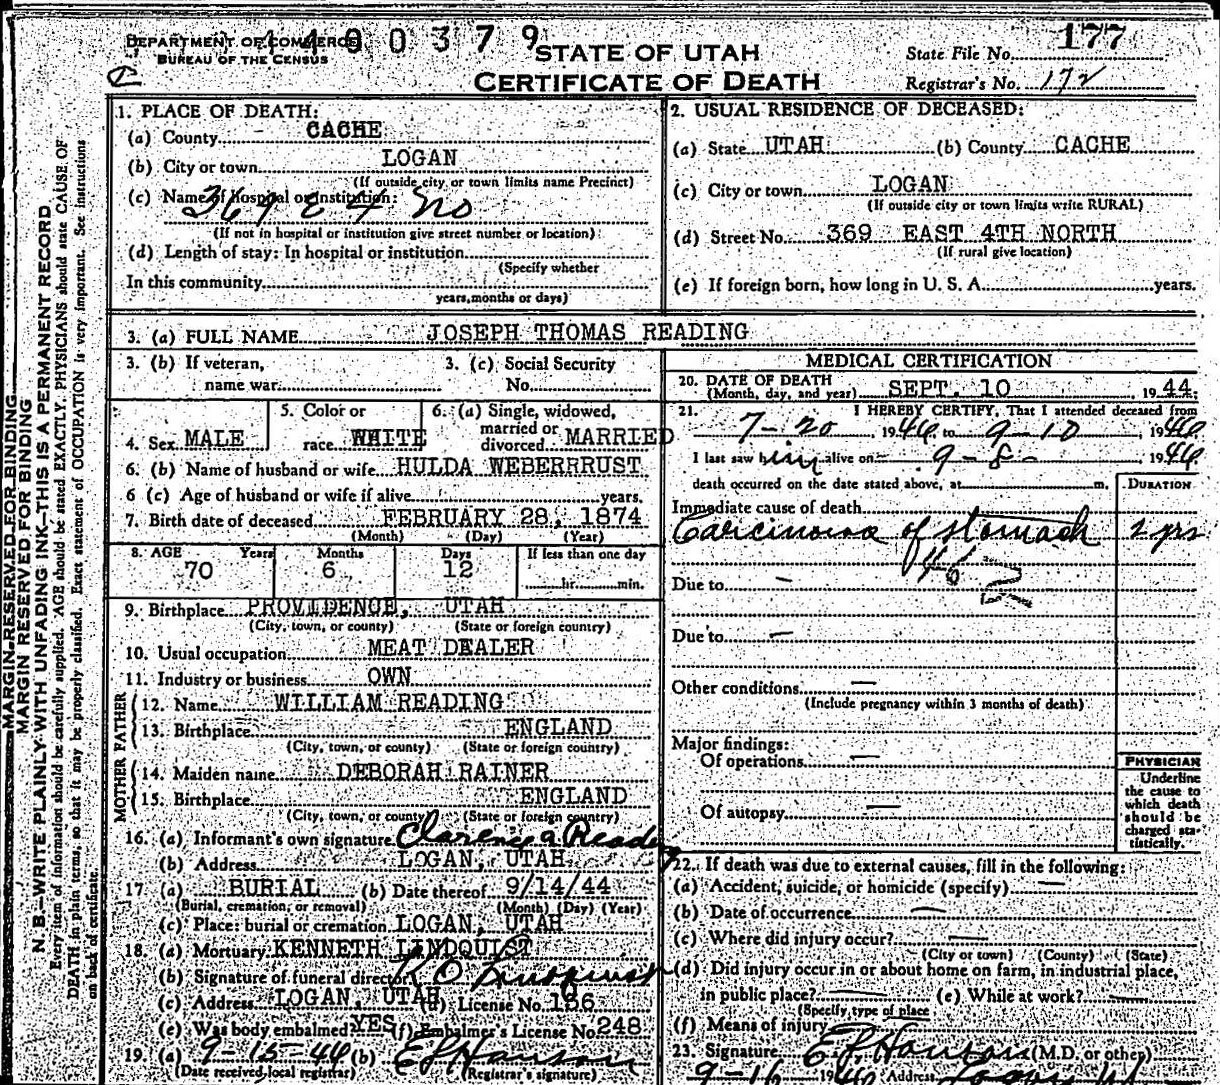 DEPARTMENT OF COMMERCE
BUREAU OF THE CENSUS
4400379
STATE OF UTAH
CERTIFICATE OF DEATH
State File No. 177
Registrar's No. 172
MARGIN RESERVED FOR BINDING
MARGIN RESERVED FOR BINDING
N. B.—WRITE PLAINLY WITH UNFADING INK—THIS IS A PERMANENT RECORD
Every item of information should be carefully supplied. AGE should be stated EXACTLY. PHYSICIANS should state CAUSE OF
DEATH in plain terms, so that it may be properly classified. Exact statement of OCCUPATION is very important. See instructions
on back of certificate.
1. PLACE OF DEATH:
(a) County CACHE
(b) City or town LOGAN
(If outside city or town limits name Precinct)
(c) Name of hospital or institution:
369 E 4 No
(If not in hospital or institution give street number or location)
(d) Length of stay: In hospital or institution
(Specify whether
In this community
years, months or days)
2. USUAL RESIDENCE OF DECEASED:
(a) State UTAH (b) County CACHE
(c) City or town LOGAN
(If outside city or town limits write RURAL)
(d) Street No. 369 EAST 4TH NORTH
(If rural give location)
(e) If foreign born, how long in U. S. A. years.
3. (a) FULL NAME JOSEPH THOMAS READING
3. (b) If veteran,
name war
3. (c) Social Security
No.
4. Sex MALE
5. Color or
race WHITE
6. (a) Single, widowed,
married or
divorced MARRIED
6. (b) Name of husband or wife HULDA WEBERRRUST
6 (c) Age of husband or wife if alive years.
7. Birth date of deceased FEBRUARY 28, 1874
(Month) (Day) (Year)
8. AGE Years Months Days If less than one day
70 6 12 hr. min.
9. Birthplace PROVIDENCE, UTAH
(City, town, or county) (State or foreign country)
10. Usual occupation MEAT DEALER
11. Industry or business OWN
FATHER
12. Name WILLIAM READING
13. Birthplace ENGLAND
(City, town, or county) (State or foreign country)
MOTHER
14. Maiden name DEBORAH RAINER
15. Birthplace ENGLAND
(City, town, or county) (State or foreign country)
16. (a) Informant's own signature Clarence a Reading
(b) Address LOGAN, UTAH
17 (a) BURIAL (b) Date thereof 9/14/44
(Burial, cremation, or removal) (Month) (Day) (Year)
(c) Place: burial or cremation LOGAN, UTAH
18. (a) Mortuary KENNETH LINDQUIST
(b) Signature of funeral director K O Lindquist
(c) Address LOGAN, UTAH (d) License No. 186
(e) Was body embalmed? YES (f) Embalmer's License No. 248
19. (a) 9-15-44 (b) E L Hanson
(Date received local registrar) (Registrar's signature)
MEDICAL CERTIFICATION
20. DATE OF DEATH
(Month, day, and year) SEPT. 10, 1944
21. I HEREBY CERTIFY, That I attended deceased from
7-20 1944, to 9-10 1944
I last saw him alive on 9-8- 1944
death occurred on the date stated above, at m.
DURATION
Immediate cause of death
Carcinoma of stomach 2 yrs
46
Due to —
Due to —
Other conditions —
(Include pregnancy within 3 months of death)
Major findings:
Of operations —
Of autopsy —
PHYSICIAN
Underline
the cause to
which death
should be
charged sta-
tistically.
22. If death was due to external causes, fill in the following:
(a) Accident, suicide, or homicide (specify) —
(b) Date of occurrence —
(c) Where did injury occur? —
(City or town) (County) (State)
(d) Did injury occur in or about home on farm, in industrial place,
in public place? — (e) While at work? —
(Specify type of place
(f) Means of injury
23. Signature E L Hanson (M.D. or other)
9-16 1944 Address Logan Ut